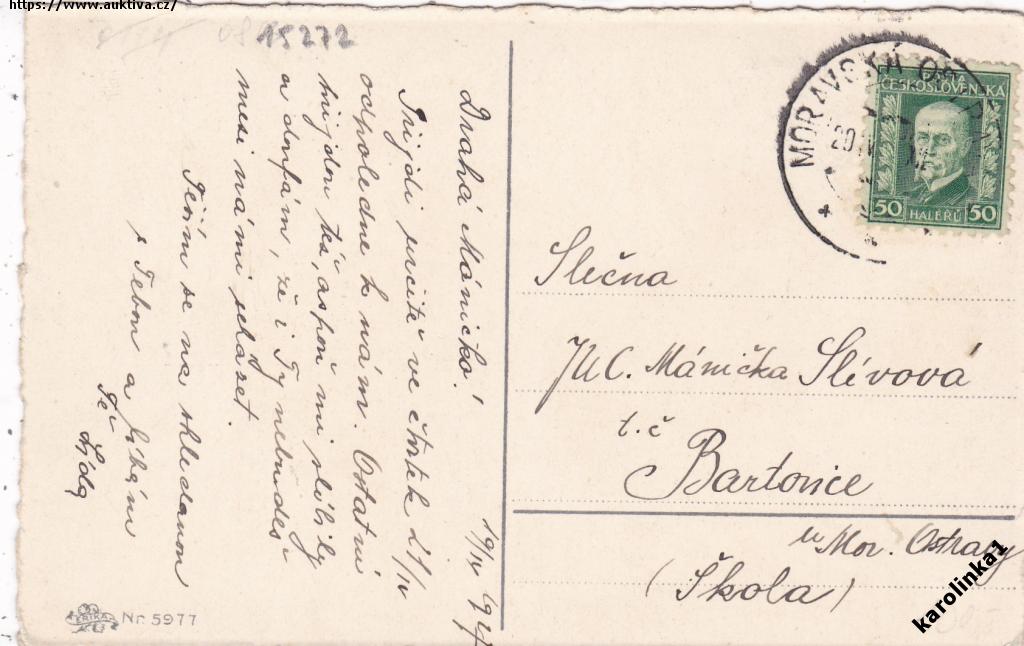 https://www.auktiva.cz/
15272
Drahá Máničko!
19/IV
Přijdi určitě ve čtvrtek 21/IV
odpoledne k nám. Ostatní
přijdou též, aspoň mi slíbily
a doufám, že i Ty nebudeš
mezi námi scházet.
Těším se na shledanou
s Tebou a líbám
Tě Lída
ERIKA
Nr. 5977
MORAVSKÁ OSTRAVA
20.IV
POŠTA
ČESKOSLOVENSKÁ
50 HALÉŘŮ 50
Slečna
JUC. Mánička Slívová
t. č
Bartovice
u Mor. Ostravy
(Škola)
karolinka1